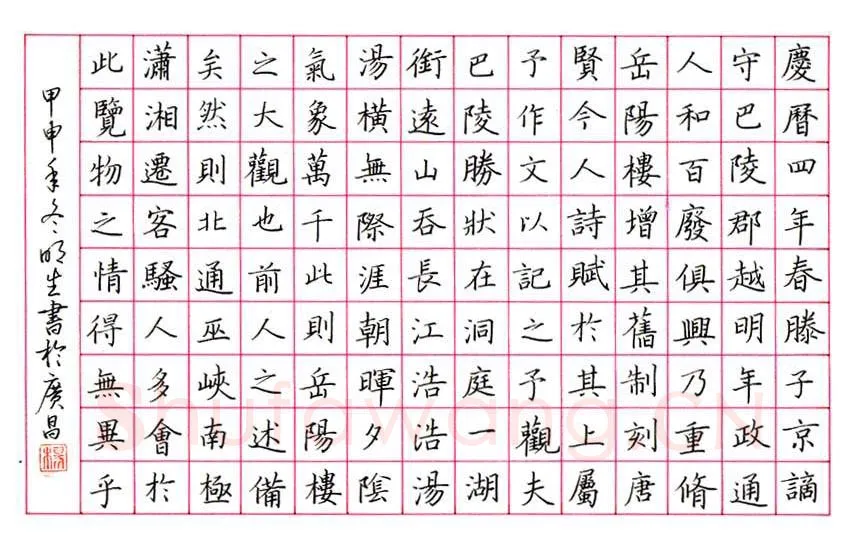 慶曆四年春滕子京謫
守巴陵郡越明年政通
人和百廢俱興乃重脩
岳陽樓增其舊制刻唐
賢今人詩賦於其上屬
予作文以記之予觀夫
巴陵勝狀在洞庭一湖
銜遠山吞長江浩浩湯
湯橫無際涯朝暉夕陰
氣象萬千此則岳陽樓
之大觀也前人之述備
矣然則北通巫峽南極
瀟湘遷客騷人多會於
此覽物之情得無異乎
甲申年冬明生書於廣昌
Shufawang.CN